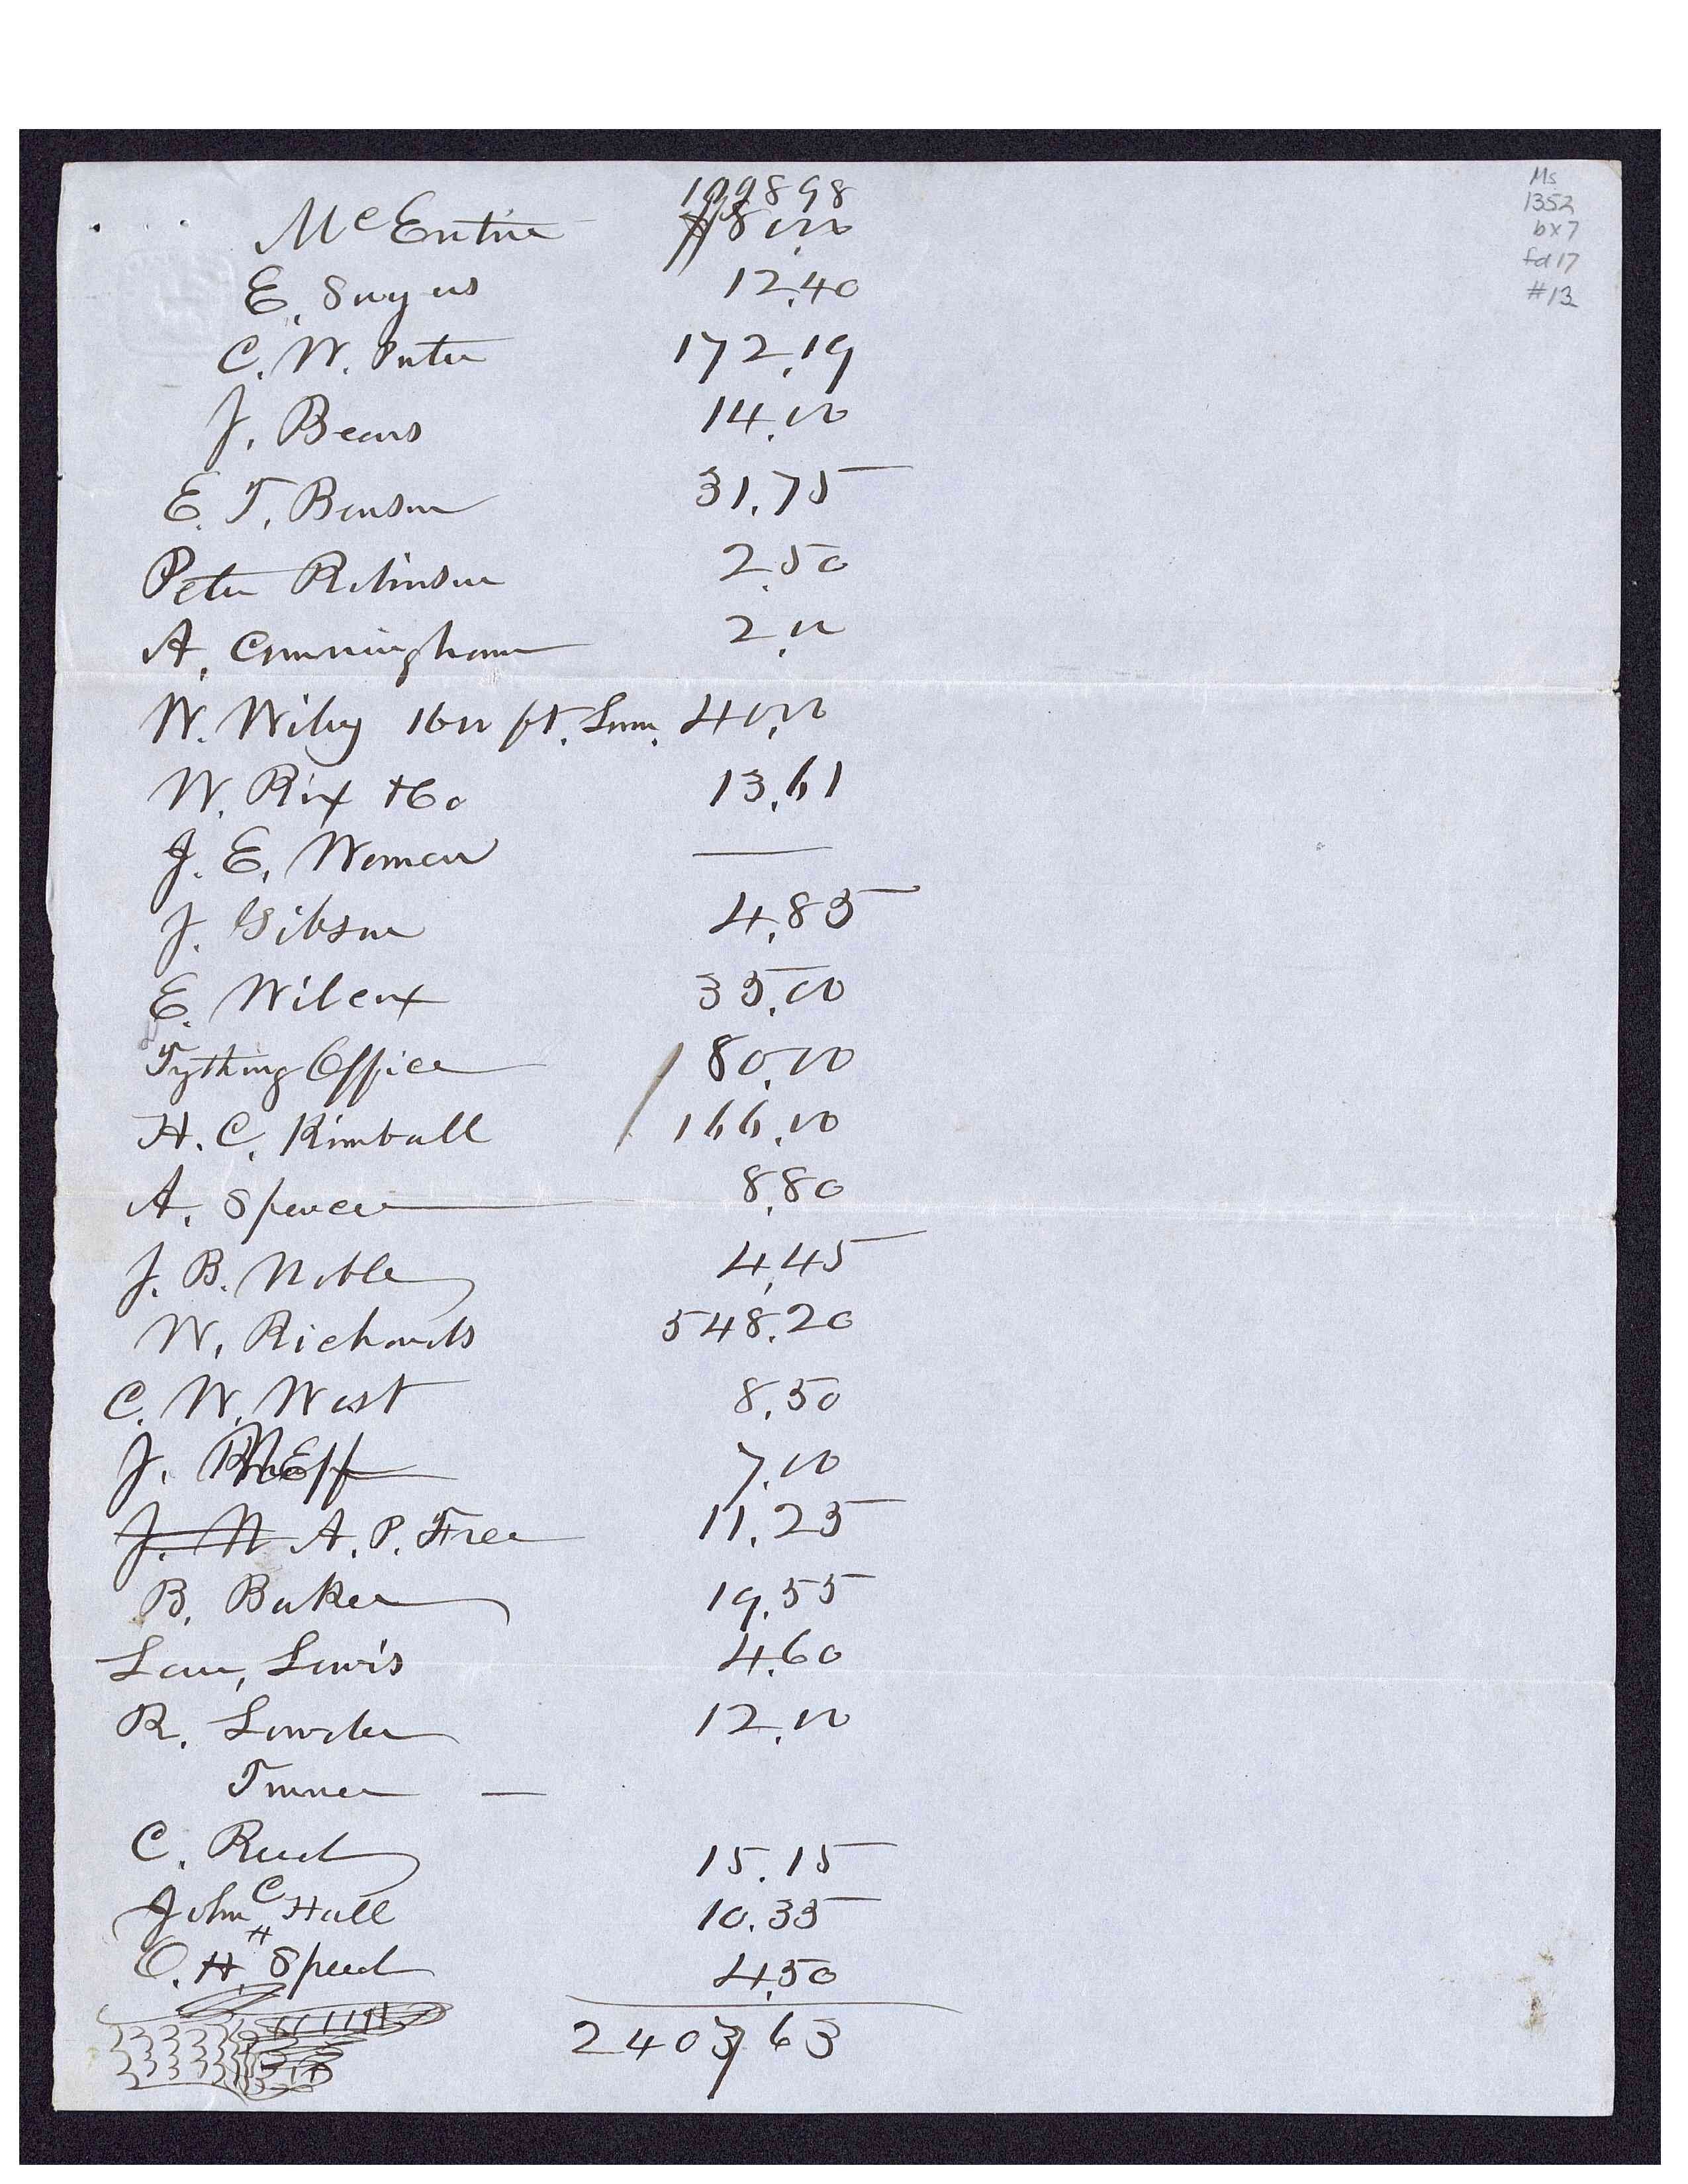 109898
Mc Entire $8.00
E. Sayers 12.40
C. W. 172.19
J. Bears 14.00
E. T. Benson 31.75
Peter Robinson 2.50
A. Cunningham 2.00
W. Wiley 1600 ft. Lum. 40.00
W. Rix & Co 13.61
J. E. ———
J. Gibson 4.85
E. Wilcox 35.00
Tything Office 80.00
H. C. Kimball 166.00
A. Spencer 8.80
J. B. Noble 4.45
W. Richards 548.20
C. W. West 8.50
J. Neff 7.00
J. N A. P. Free 11.25
B. Baker 19.55
Lewis 4.60
R. Lowder 12.00
Turner —
C. Reed 15.15
John C Hall 10.35
O. H. Speed 4.50
2403 63
Ms
1352
bx7
fd17
#13